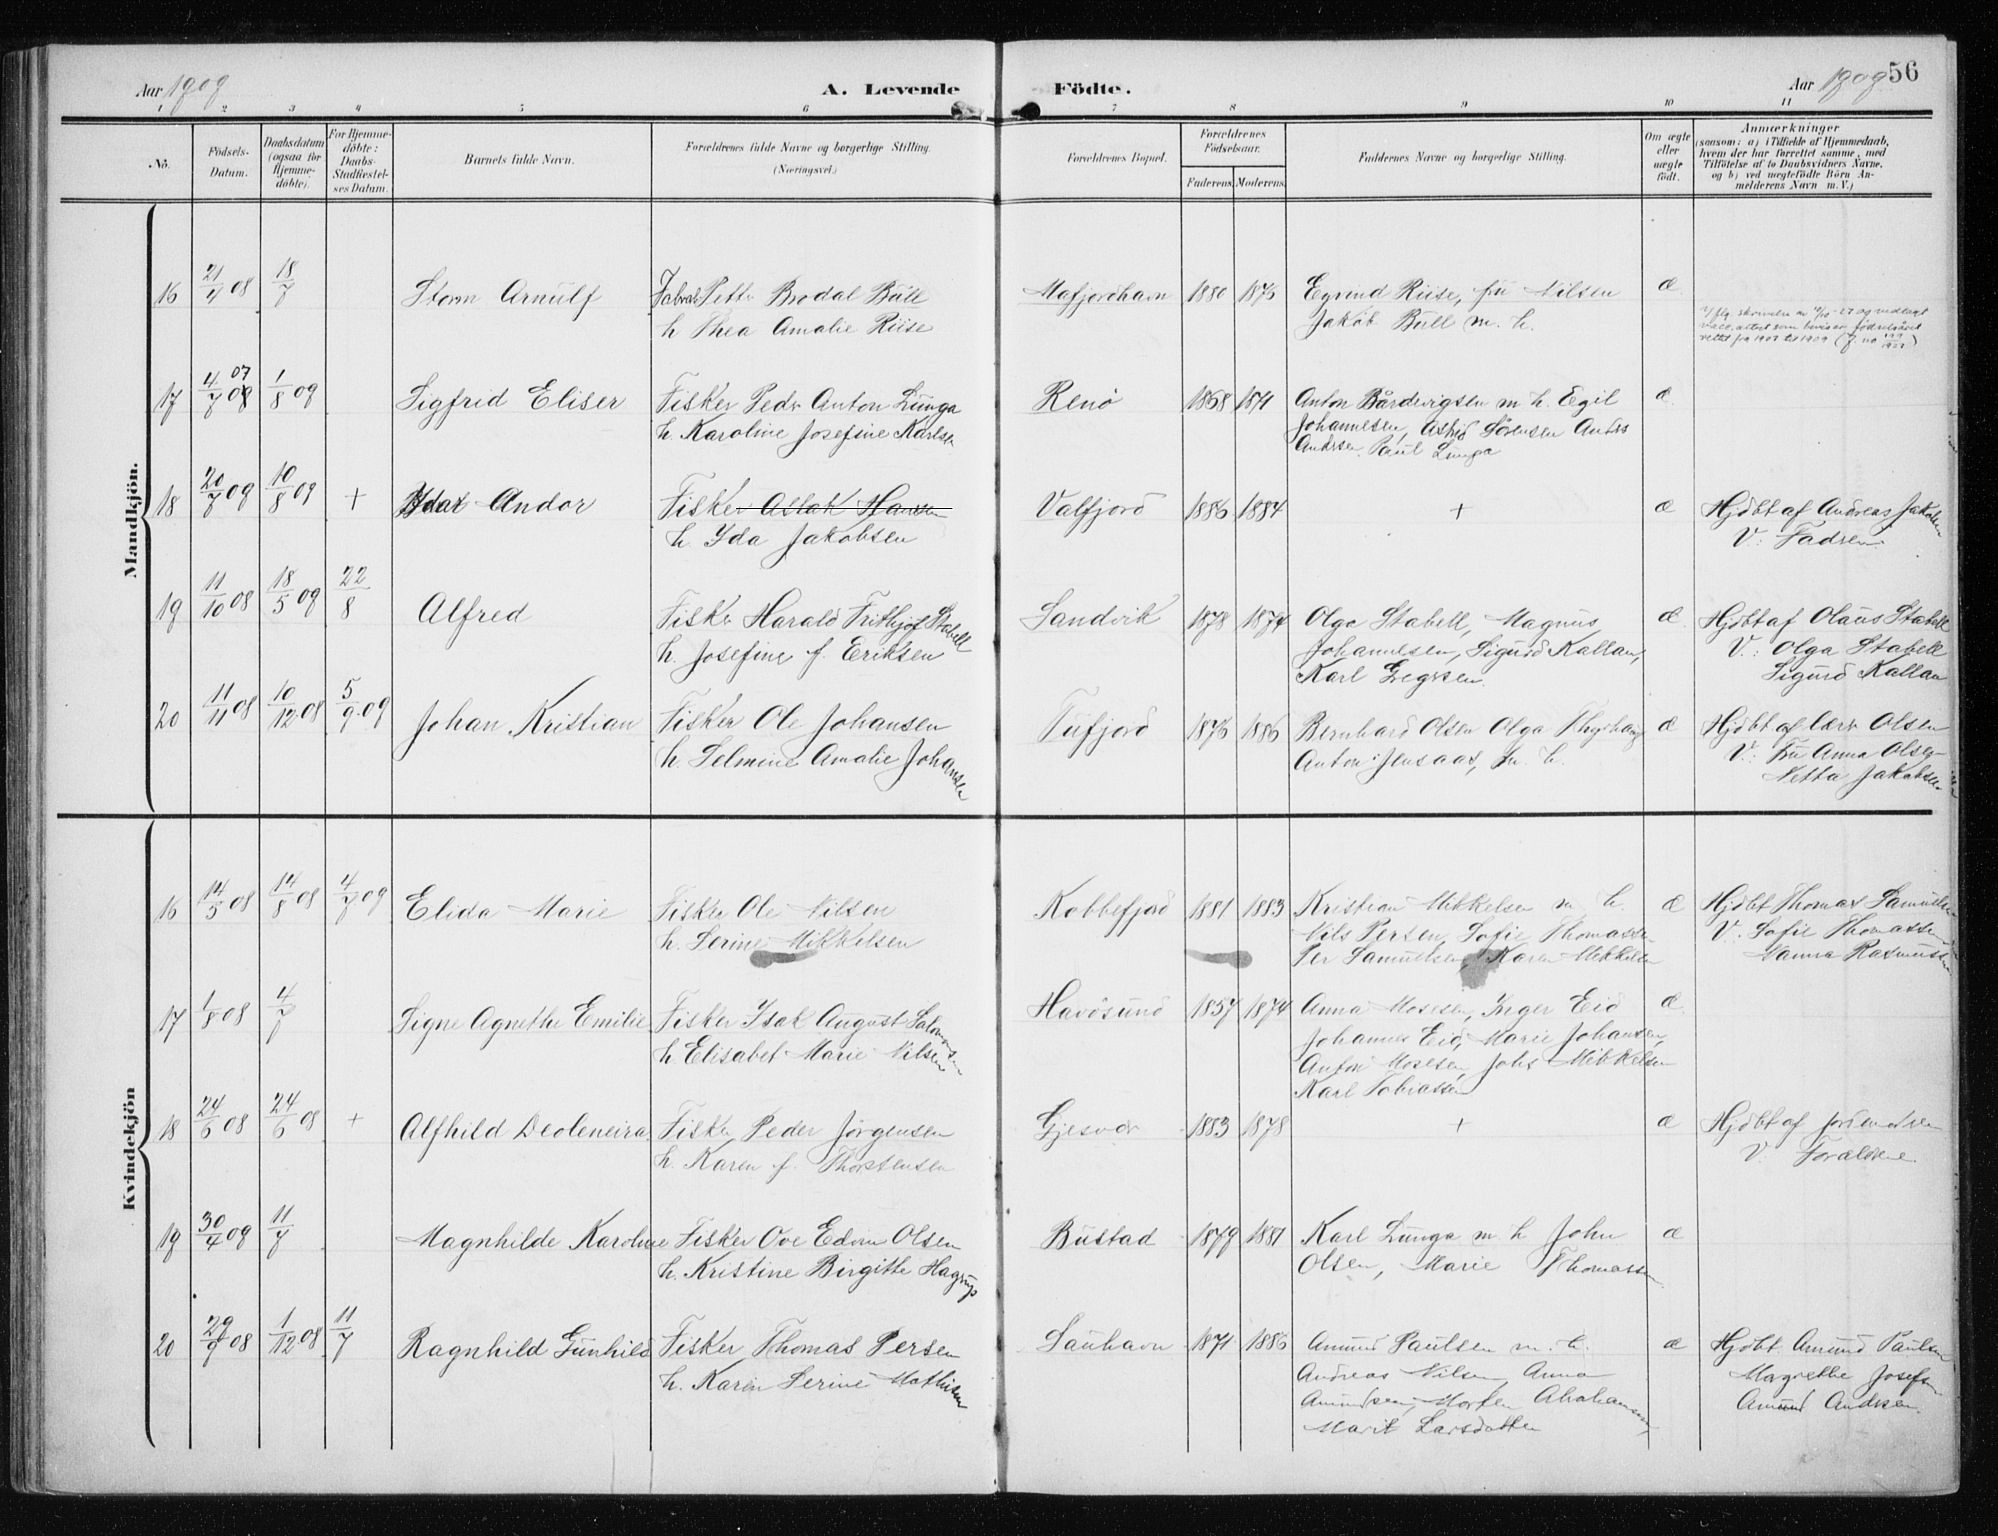 Aar 1909
A. Levende
Födte.
Aar 1909
56
1 2 3 4 5 6 7 8 9 10 11
No.
Födsels-Datum.
Daabsdatum (ogsaa for Hjemme-döbte).
For Hjemme-döbte: Daabs-Stadfæstel-ses Datum.
Barnets fulde Navn.
Forældrenes fulde Navne og borgerlige Stilling. (Næringsvei.)
Forældrenes Bopæl.
Forældrenes Födselsaar.
Faderens. Moderens.
Faddernes Navne og borgerlige Stilling.
Om ægte eller uægte födt.
Anmærkninger
(saasom: a) i Tilfælde af Hjemmedaab,
hvem der har forrettet samme, med
Tilföielse af to Daabsvidners Navne,
og b) ved uægtefödte Börn An-
melderens Navn m. V.)
Mandkjön.
16 21/4 08 18/7 Storm Arnulf Petter Brodal Bull Mafjordhavn 1880 1876 Eyvind Riise, fru Nilsen æ
h Thea Amalie Riise Jakob Bull m. h.
17 4/7 08 07 1/8 09 Sigfrid Eliser Fisker Peder Anton Lunga Renö 1868 1871 Anton Bårdvigsen m h. Egil æ
h. Karoline Josefine Karlsen Johannesen, Astrid Sörensen Anders
Andersen Paul Lunga
18 20/7 09 10/8 09 + Andor Fisker Aslak Hansen Valfjord 1886 1884 + æ Hjdbt af Andreas Jakobsen
h. Yda Jakobsen V: Fadren
19 11/10 08 18/5 09 22/8 Alfred Fisker Harald Frithjof Stabell Sandvik 1878 1874 Olga Stabell, Magnus æ Hjdbt af Olaus Stabell
h. Josefine f. Eriksen Johannesen, Sigurd Kallan, V: Olga Stabell
Karl Gregersen Sigurd Kallan
20 11/11 08 10/12 08 5/9 09 Johan Kristian Fisker Ole Johansen Tufjord 1876 1886 Bernhard Olsen Olga æ Hjdbt af Olsen
h. Selmine Amalie Johansen Anton Jensaas, m. h. V: fru Anna Olsen
Netta Jakobsen
Kvindekjön
16 14/5 08 14/8 08 4/7 09 Elida Marie Fisker Ole Nilsen Kobbefjord 1881 1883 Kristian Mikkelsen m h. æ Hjdbt Thomas Samuelsen
h. Serine Mikkelsen Nils Persen, Sofie Thomassen V. Sofie Thomassen
Per Samuelsen, Karen Mikkelsen Nanna Rasmussen
17 1/8 08 4/7 Signe Agnethe Emilie Fisker Isak August Salomonsen Havösund 1857 1874 Anna Mosesen, Inger Eid æ
h. Elisabet Marie Nilsen Johannes Eid, Marie Johansen,
Anton Mosesen, Johs Mikkelsen
Karl Tobiassen
18 24/6 08 24/6 08 + Alfhild Deoleneira Fisker Peder Jörgensen Gjesvær 1883 1878 + æ Hjdbt af
h. Karen f. Thorstensen V. Forældrene
19 30/4 09 11/7 Magnhilde Karoline Fisker Ove Edvin Olsen Bustad 1879 1881 Karl Lunga m. h John æ
h. Kristine Birgitte Hagrup Olsen, Marie Thomassen
20 29/9 08 1/12 08 11/7 Ragnhild Gunhild Fisker Thomas Persen Sauhavn 1871 1886 Amund Paulsen m. h. æ Hjdbt. Amund Paulsen
h. Karen Serine Mathisen Andreas Nilsen, Anna Margrethe Josefsen
Amundsen, Morten Abrahamsen, Amund Andersen
Marit Larsdatter